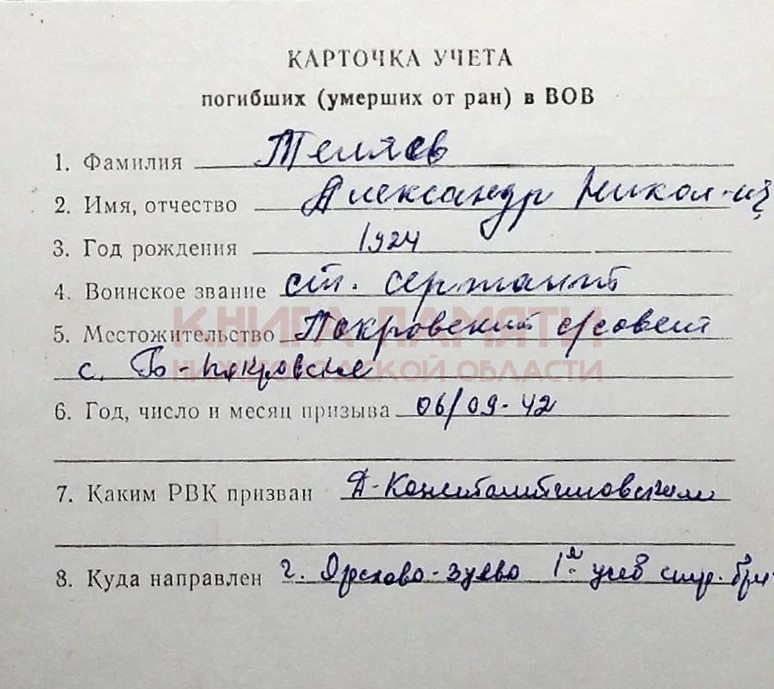 КАРТОЧКА УЧЕТА
погибших (умерших от ран) в ВОВ
1. Фамилия Теляев
2. Имя, отчество Александр Никол-ич
3. Год рождения 1924
4. Воинское звание ст. сержант
5. Местожительство Покровский с/совет
КНИГА ПАМЯТИ
НИЖЕГОРОДСКОЙ ОБЛАСТИ
с. Б-Покровское
6. Год, число и месяц призыва 06/09-42
7. Каким РВК призван Д-Константиновским
8. Куда направлен г. Орехово-Зуево 1я учеб стр. бриг